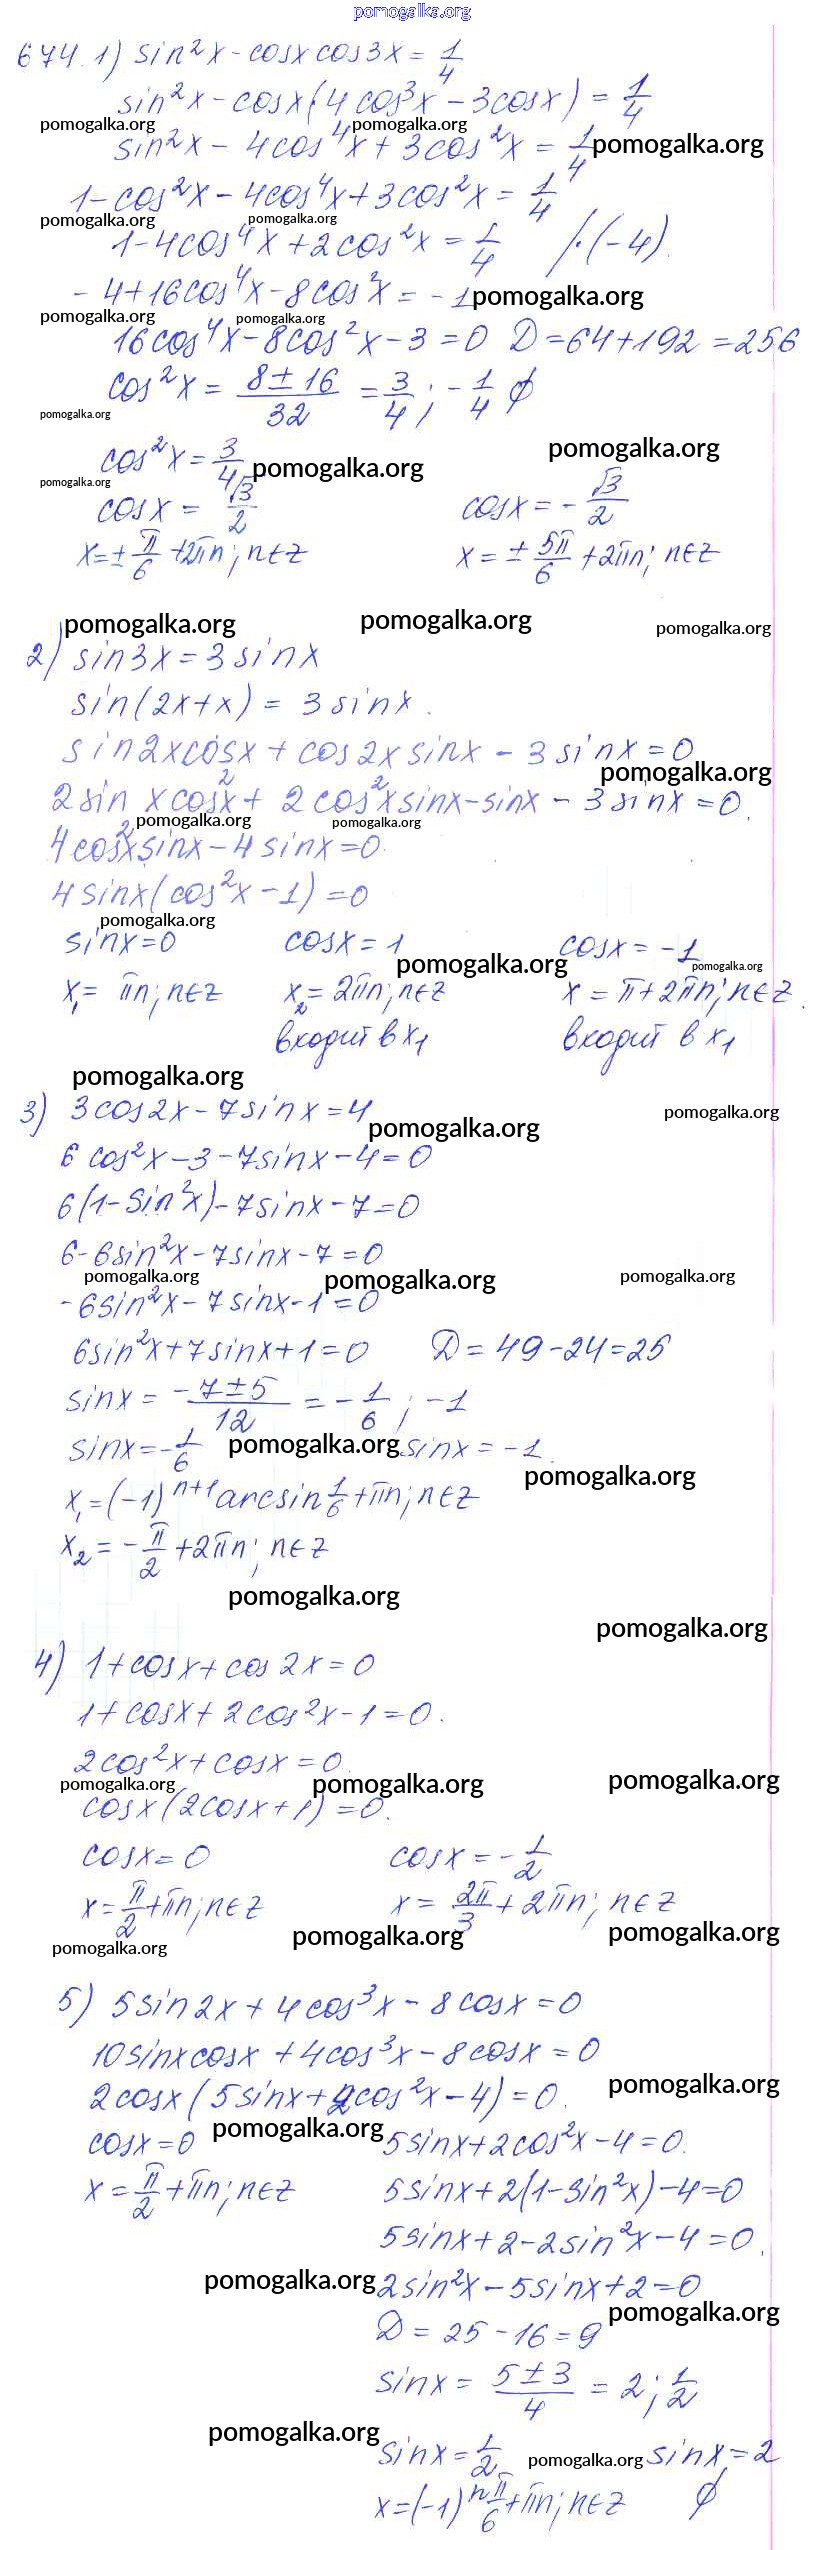 pomogalka.org
674. 1) sin²x - cosx cos3x = 1/4
sin²x - cosx(4cos³x - 3cosx) = 1/4
pomogalka.org pomogalka.org
sin²x - 4cos⁴x + 3cos²x = 1/4 pomogalka.org
1 - cos²x - 4cos⁴x + 3cos²x = 1/4
pomogalka.org pomogalka.org
1 - 4cos⁴x + 2cos²x = 1/4 /·(-4).
- 4 + 16cos⁴x - 8cos²x = - 1 pomogalka.org
pomogalka.org pomogalka.org
16cos⁴x - 8cos²x - 3 = 0 D = 64 + 192 = 256
cos²x = (8 ± 16)/32 = 3/4; - 1/4 ∅
pomogalka.org
cos²x = 3/4 pomogalka.org pomogalka.org
pomogalka.org
cosx = √3/2 cosx = - √3/2
x = ± π/6 + 2πn; n∈Z x = ± 5π/6 + 2πn; n∈Z
pomogalka.org pomogalka.org pomogalka.org
2) sin3x = 3sinx
sin(2x+x) = 3sinx.
sin2xcosx + cos2xsinx - 3sinx = 0
pomogalka.org
2sin xcos²x + 2cos²xsinx - sinx - 3sinx = 0.
pomogalka.org pomogalka.org
4cos²xsinx - 4sinx = 0
4sinx(cos²x - 1) = 0
pomogalka.org
sinx = 0 cosx = 1 cosx = -1
pomogalka.org pomogalka.org
x₁ = πn; n∈Z x₂ = 2πn; n∈Z x = π + 2πn; n∈Z.
входит в x₁ входит в x₁
pomogalka.org
3) 3cos2x - 7sinx = 4 pomogalka.org
pomogalka.org
6cos²x - 3 - 7sinx - 4 = 0
6(1 - Sin²x) - 7sinx - 7 = 0
6 - 6sin²x - 7sinx - 7 = 0
pomogalka.org pomogalka.org pomogalka.org
-6sin²x - 7sinx - 1 = 0
6sin²x + 7sinx + 1 = 0 D = 49 - 24 = 25
sinx = (-7 ± 5)/12 = - 1/6; -1
sinx = - 1/6 pomogalka.org sinx = -1.
pomogalka.org
x₁ = (-1)ⁿ⁺¹ arcsin 1/6 + πn; n∈Z
x₂ = - π/2 + 2πn; n∈Z
pomogalka.org
pomogalka.org
4) 1 + cosx + cos2x = 0
1 + cosx + 2cos²x - 1 = 0.
2cos²x + cosx = 0.
pomogalka.org pomogalka.org pomogalka.org
cosx(2cosx + 1) = 0.
cosx = 0 cosx = - 1/2
x = π/2 + πn; n∈Z x = 2π/3 + 2πn; n∈Z
pomogalka.org pomogalka.org pomogalka.org
5) 5sin2x + 4cos³x - 8cosx = 0
10sinxcosx + 4cos³x - 8cosx = 0
pomogalka.org
2cosx(5sinx + 2cos²x - 4) = 0.
cosx = 0 pomogalka.org 5sinx + 2cos²x - 4 = 0.
x = π/2 + πn; n∈Z 5sinx + 2(1 - sin²x) - 4 = 0
5sinx + 2 - 2sin²x - 4 = 0.
pomogalka.org 2sin²x - 5sinx + 2 = 0
pomogalka.org
D = 25 - 16 = 9
sinx = (5 ± 3)/4 = 2; 1/2
pomogalka.org
sinx = 1/2 pomogalka.org sinx = 2
x = (-1)ⁿ π/6 + πn; n∈Z ∅